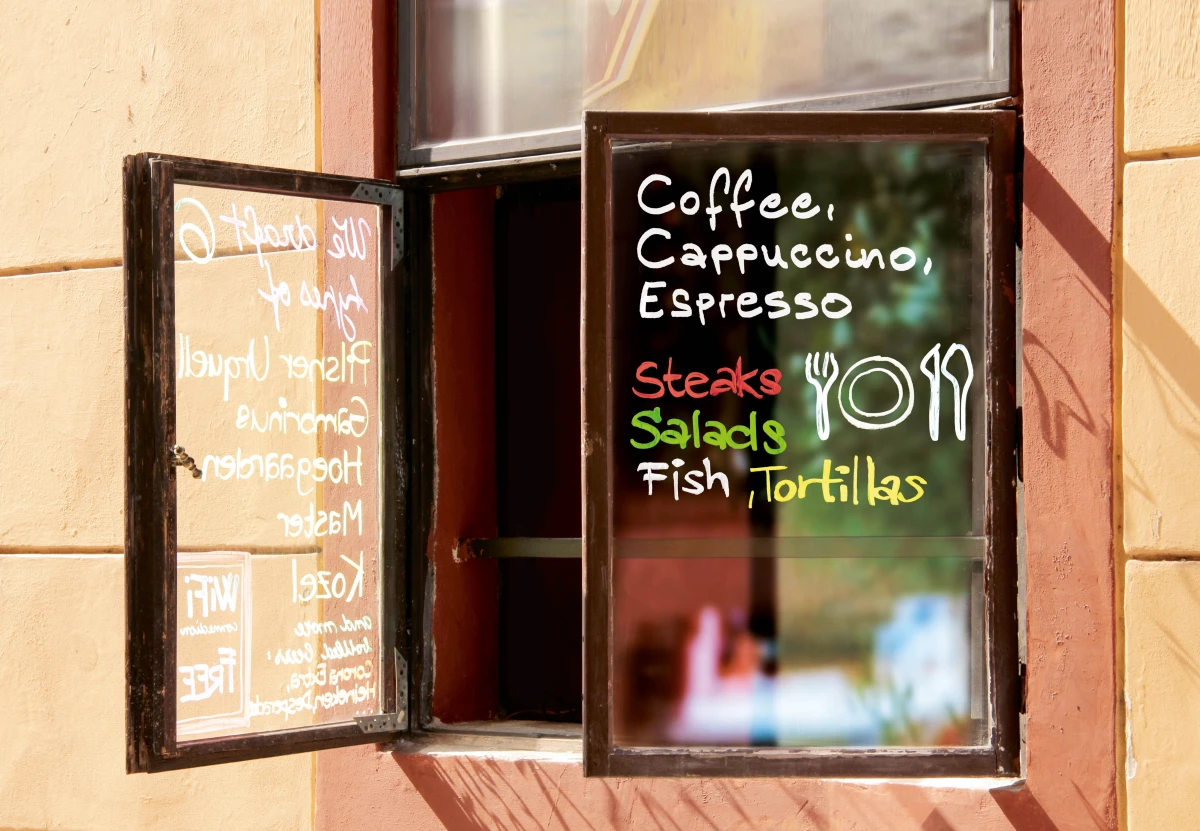 We draft 6
types of
Pilsner Urquell
Gambrinus
Hoegaarden
Master
Kozel
and more
bottled beers:
Corona Extra,
Heineken, Desperado
...
WiFi
connection
FREE
Coffee,
Cappuccino,
Espresso
Steaks
Salads
Fish , Tortillas